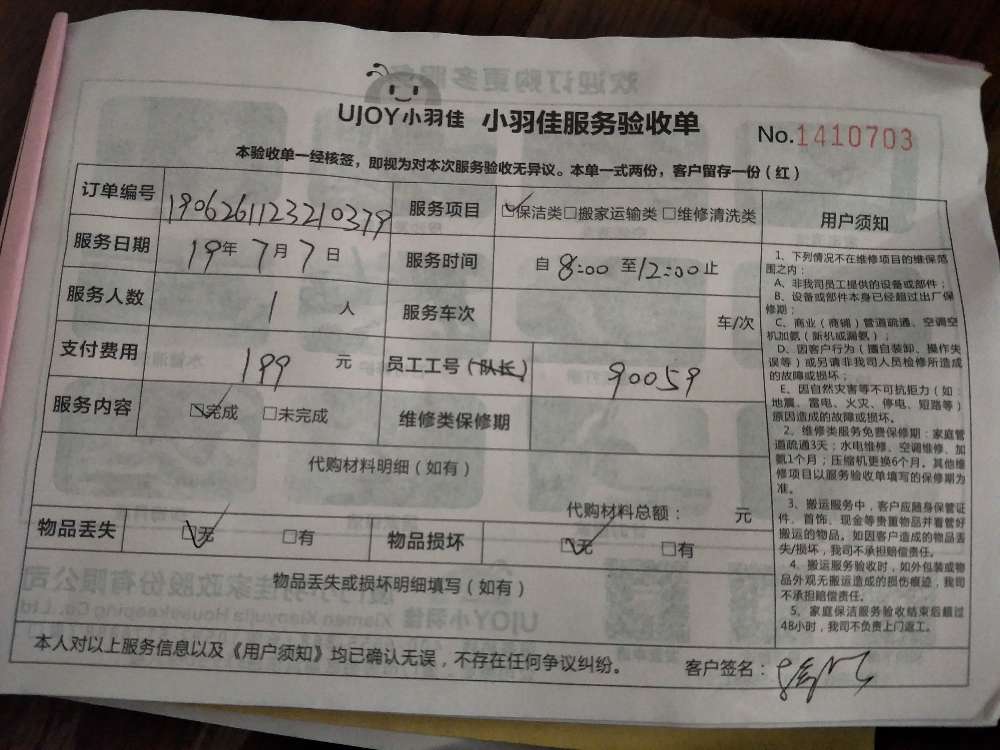 UJOY小羽佳 小羽佳服务验收单 No.1410703
本验收单一经核签，即视为对本次服务验收无异议。本单一式两份，客户留存一份（红）
订单编号 1906261123210379 服务项目 ☑保洁类□搬家运输类□维修清洗类
服务日期 19年7月7日 服务时间 自8:00至12:00止
服务人数 1人 服务车次 车/次
支付费用 199元 员工工号（队长） 90059
服务内容 ☑完成 □未完成 维修类保修期
代购材料明细（如有）
代购材料总额： 元
物品丢失 ☑无 □有 物品损坏 ☑无 □有
物品丢失或损坏明细填写（如有）
本人对以上服务信息以及《用户须知》均已确认无误，不存在任何争议纠纷。 客户签名：
用户须知
1、下列情况不在维修项目的维保范
围之内：
A、非我司员工提供的设备或部件；
B、设备或部件本身已经超过出厂保
修期；
C、商业（商铺）管道疏通、空调空
机加氨（新机或漏氨）；
D、因客户行为（擅自装卸、操作失
误等）或另请非我司人员检修所造成
的故障或损坏；
E、因自然灾害等不可抗拒力（如：
地震、雷电、火灾、停电、短路等）
原因造成的故障或损坏。
2、维修类服务免费保修期：家庭管
道疏通3天；水电维修、空调维修、加
氨1个月；压缩机更换6个月。其他维
修项目以服务验收单填写的保修期为
准。
3、搬运服务中，客户应随身保管证
件、首饰、现金等贵重物品并看管好
搬运的物品。如因客户造成的物品丢
失/损坏，我司不承担赔偿责任。
4、搬运服务验收时，如外包装或物
品外观无搬运造成的损伤痕迹，我司
不承担赔偿责任。
5、家庭保洁服务验收结束后超过
48小时，我司不负责上门返工。